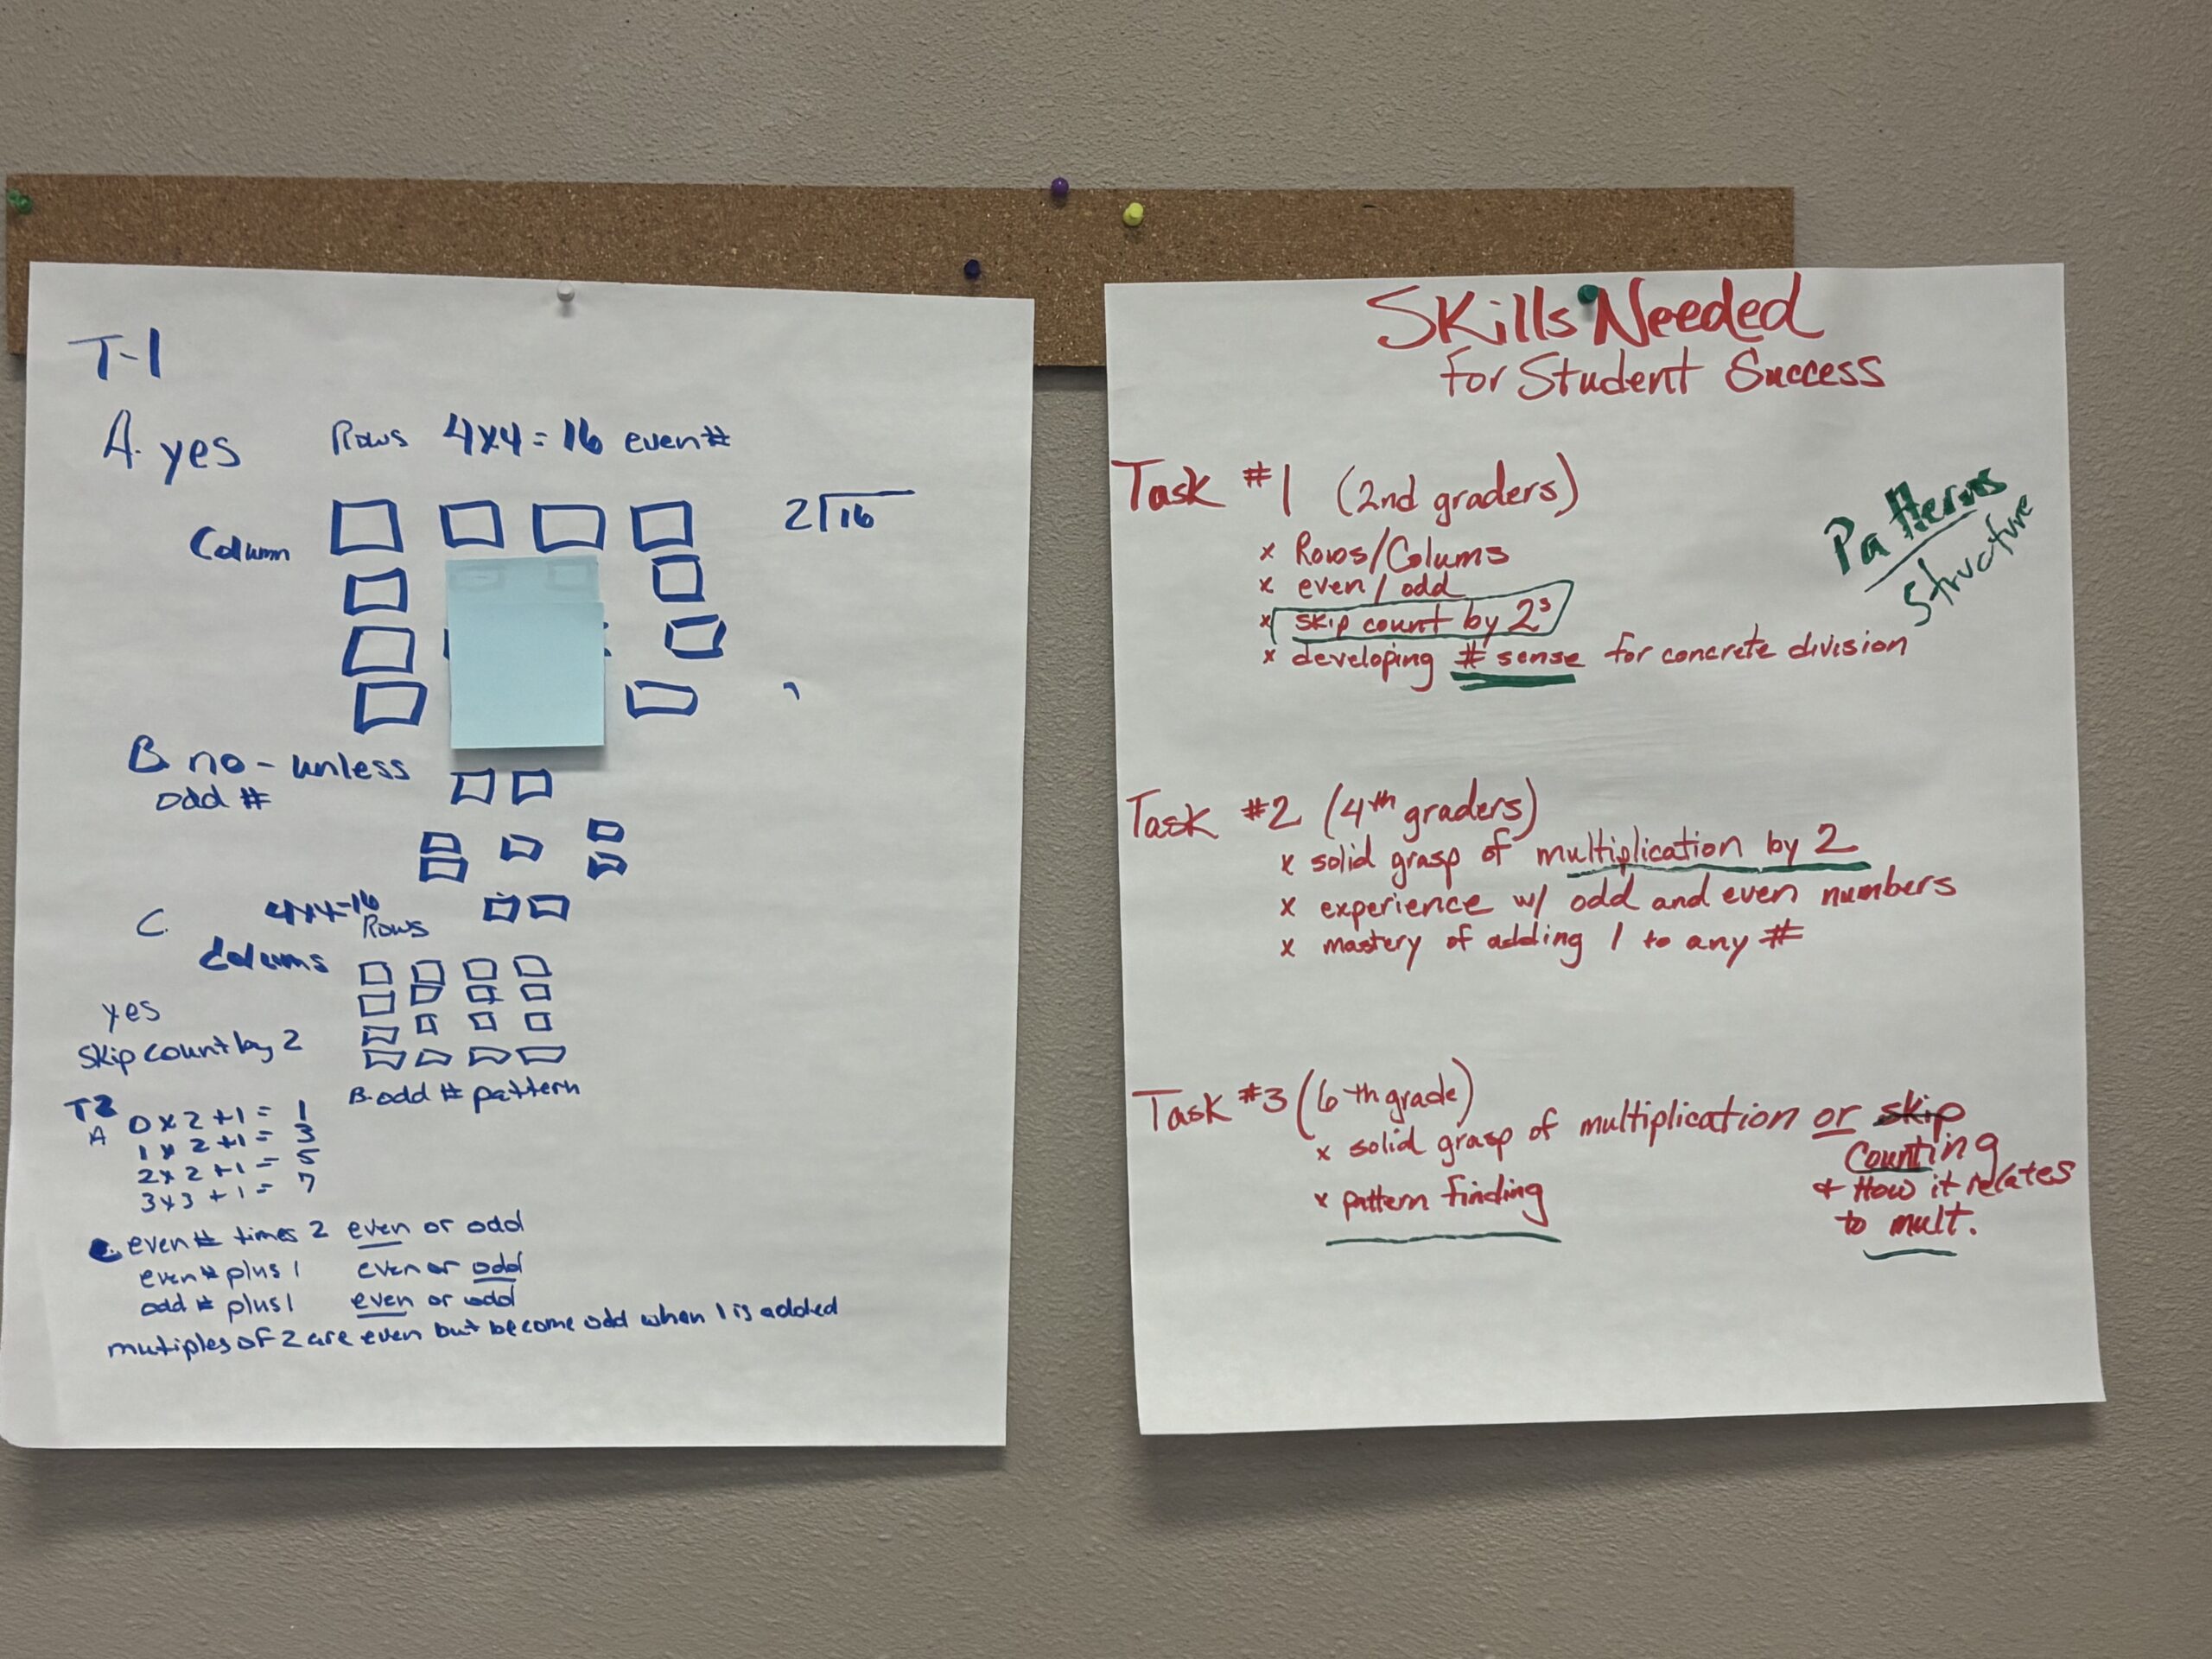 T-1
A. yes Rows 4x4=16 even#
Column
2⟌16
B. no - unless
odd #
C. 4x4=16
Rows
Colums
yes
Skip count by 2
B. odd # pattern
T2
A 0x2+1= 1
1x2+1= 3
2x2+1= 5
3x3+1= 7
C. even# times 2 even or odd
even# plus 1 even or odd
odd # plus 1 even or odd
mutiples of 2 are even but become odd when 1 is added
Skills Needed
for Student Success
Patterns
Structure
Task #1 (2nd graders)
x Rows/Colums
x even/odd
x skip count by 2s
x developing # sense for concrete division
Task #2 (4th graders)
x solid grasp of multiplication by 2
x experience w/ odd and even numbers
x mastery of adding 1 to any #
Task #3 (6th grade)
x solid grasp of multiplication or skip
Counting
+ How it relates
to mult.
x pattern finding